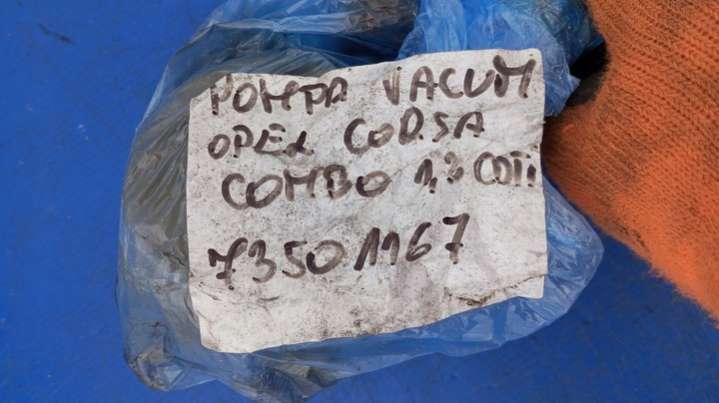 POMPA VACUM
OPEL CORSA
COMBO 1,3 CDTI
73501167